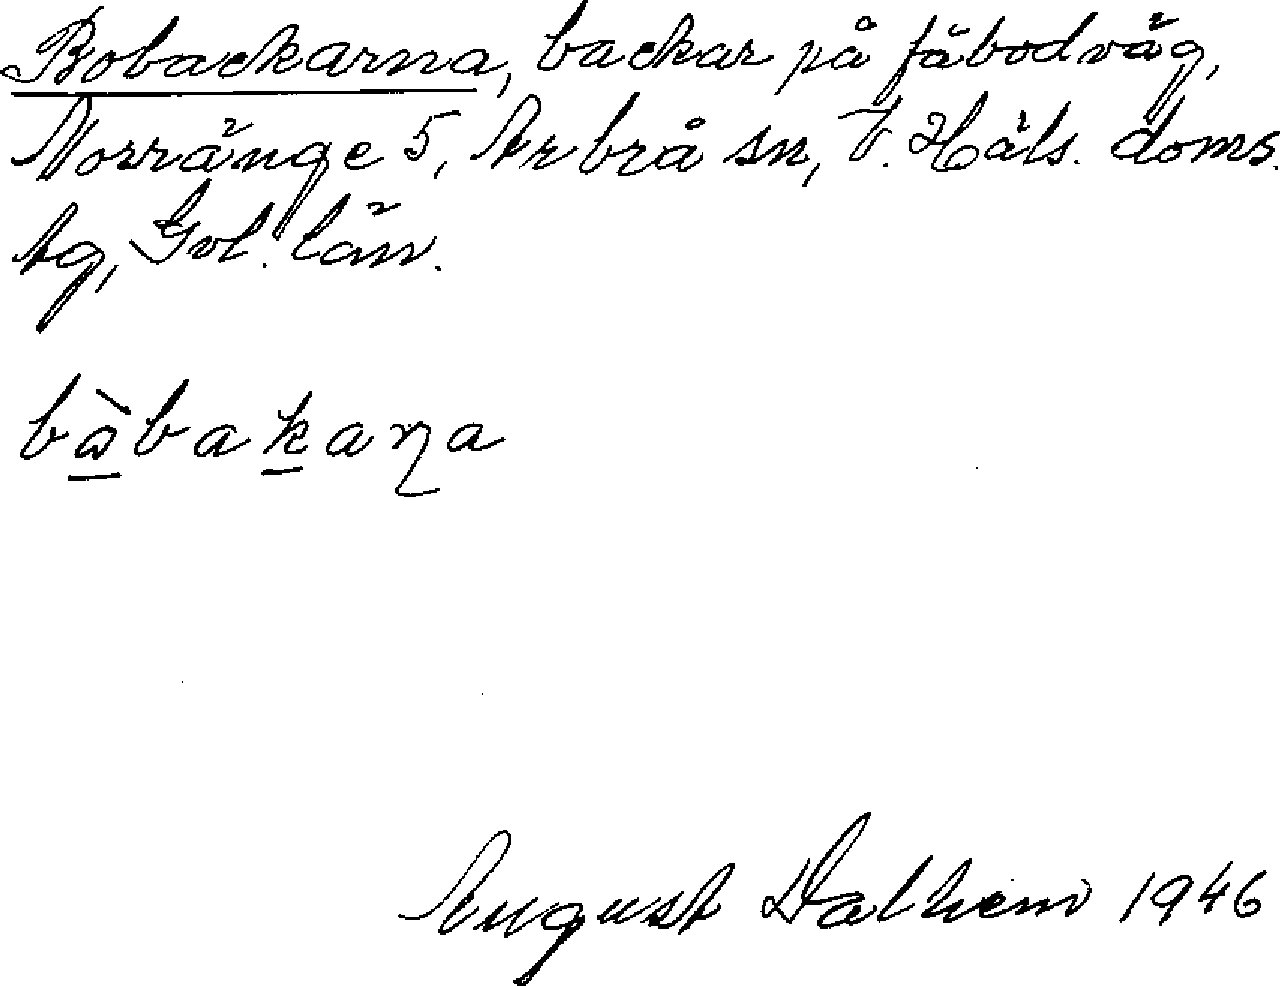 Bobackarna, backar på fäbodväg,
Norränge 5, Arbrå sn, V. Häls. doms.
tg, Gvl. län.
bὰbakaɳa
August Dalhem 1946